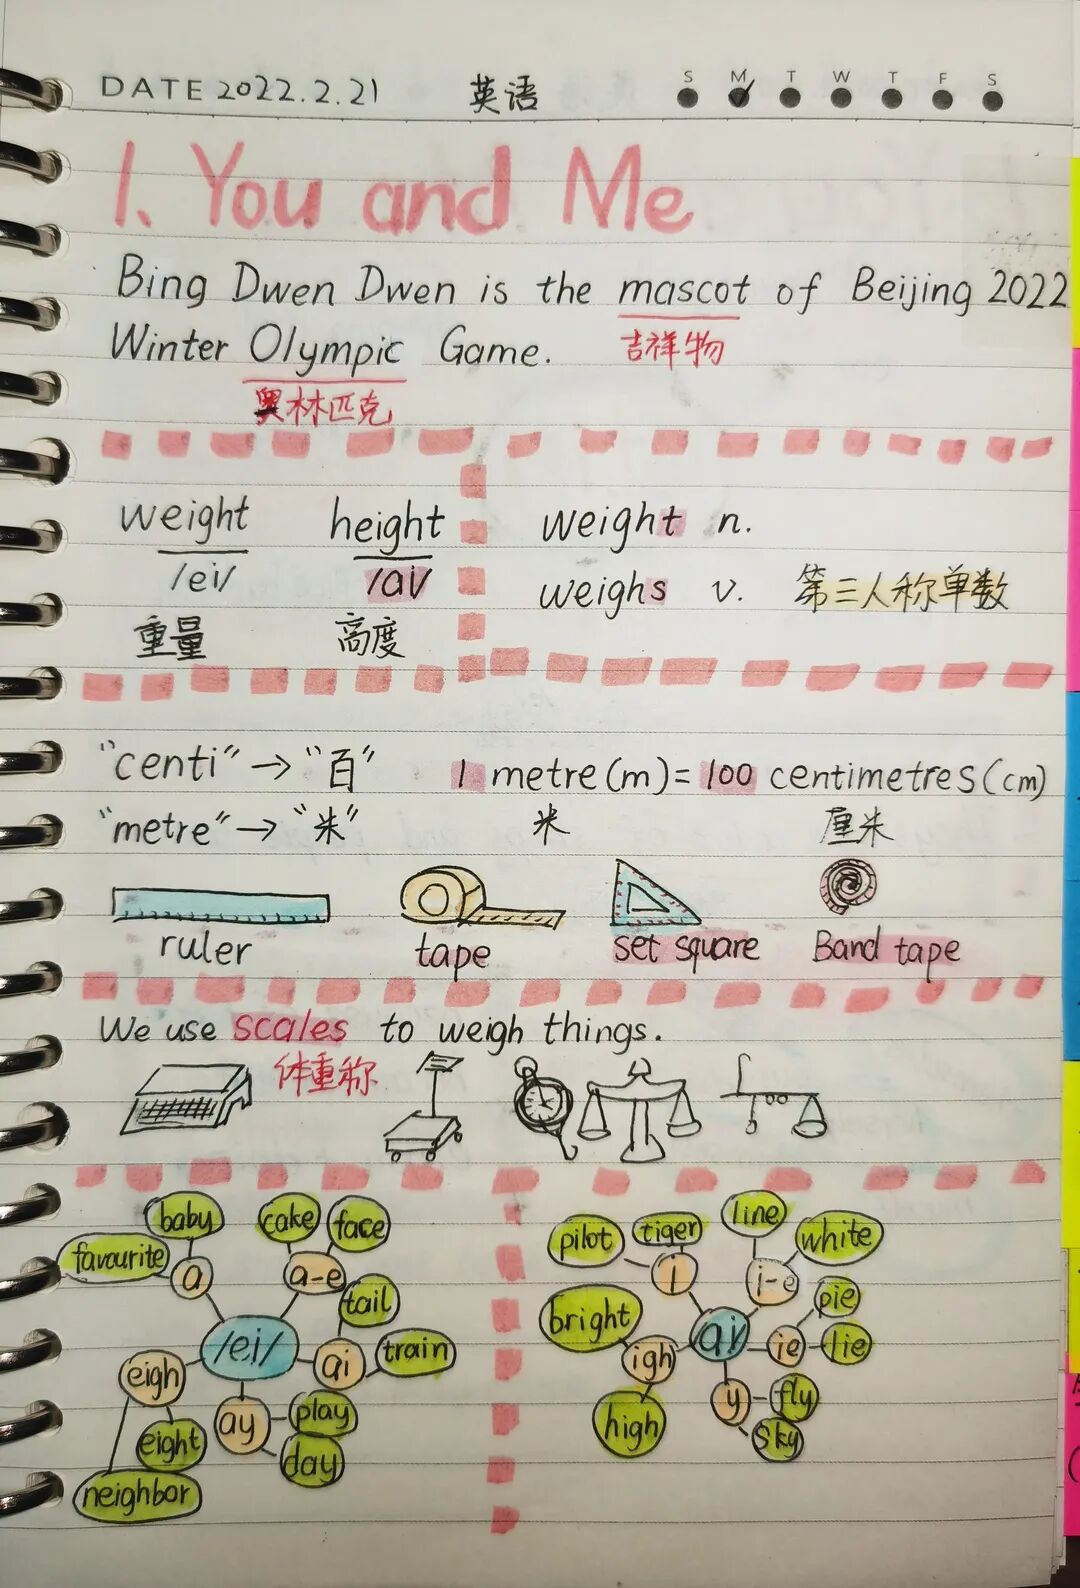 DATE 2022.2.21 英语 S M T W T F S
1、You and Me
Bing Dwen Dwen is the mascot of Beijing 2022
吉祥物
Winter Olympic Game.
奥林匹克
weight height
/ei/ /ai/
重量 高度
weight n.
weighs v. 第三人称单数
"centi"→"百" 1 metre(m)=100 centimetres(cm)
"metre"→"米" 米 厘米
ruler tape set square Band tape
We use scales to weigh things.
体重称
baby cake face
favourite a a-e
tail
/ei/ ai train
eigh
ay play
eight day
neighbor
pilot tiger line white
i i-e
bright pie
ai ie lie
igh
y fly
high sky